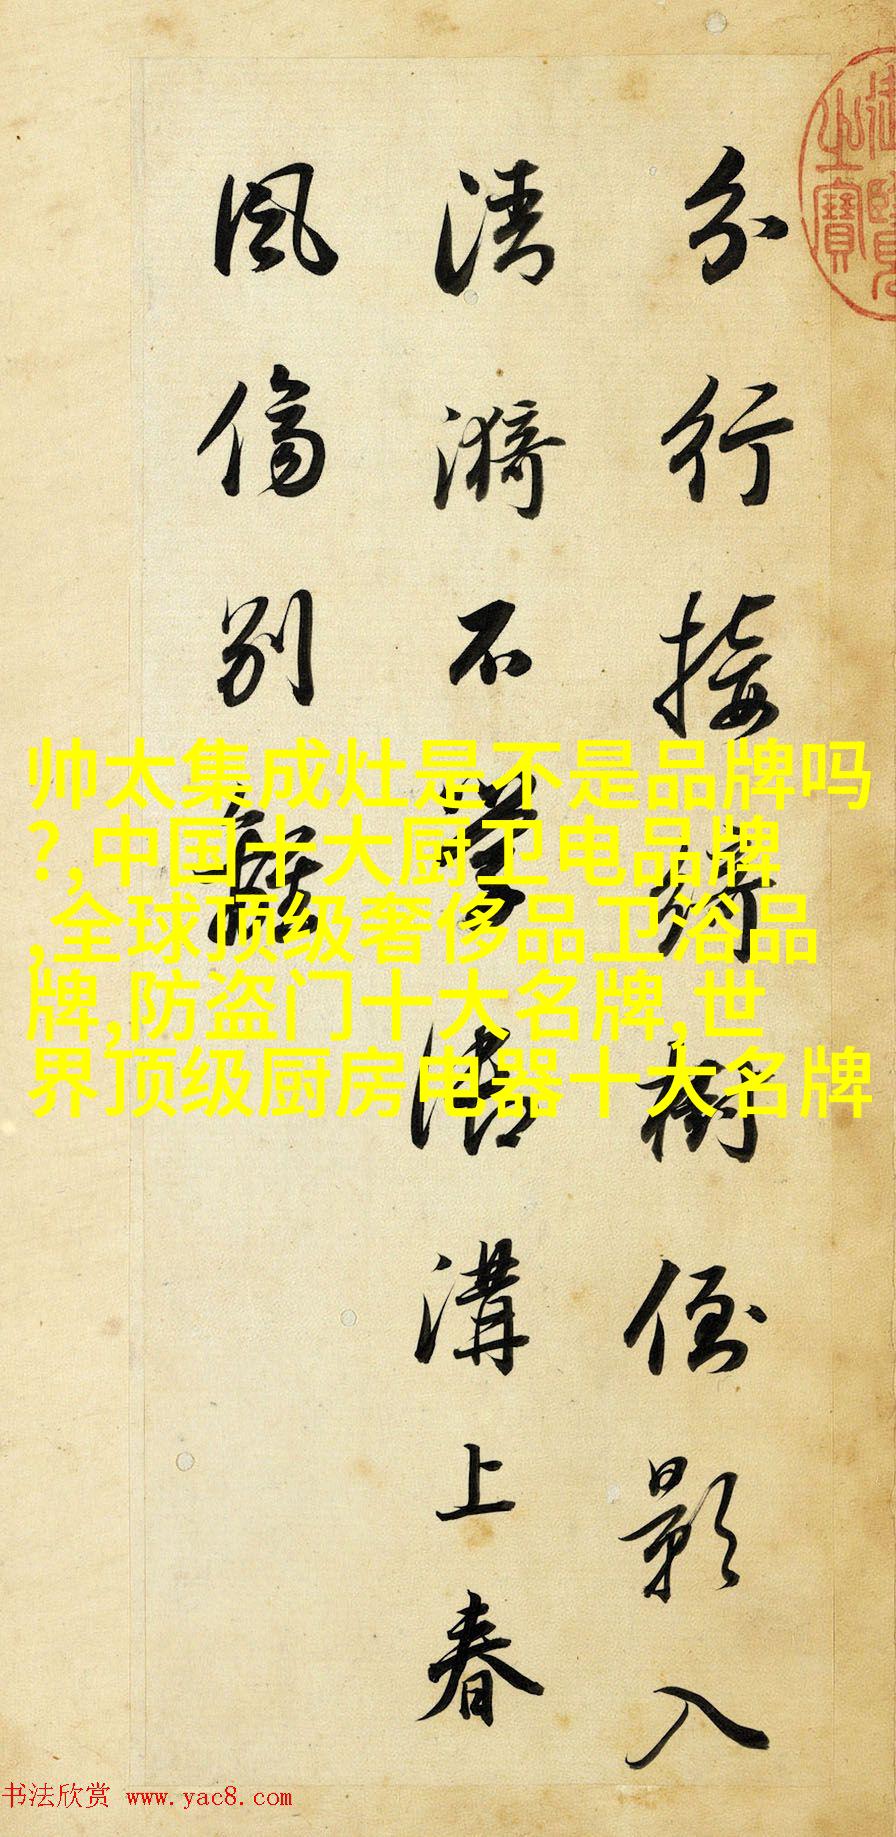 分行接綺樹倒影入
清漪不學御溝上春
風傷別離
帅太集成灶是不是品牌吗
?,中国十大厨卫电品牌
,全球顶级奢侈品卫浴品
牌,防盗门十大名牌,世
界顶级厨房电器十大名牌
书法欣赏 www.yac8.com